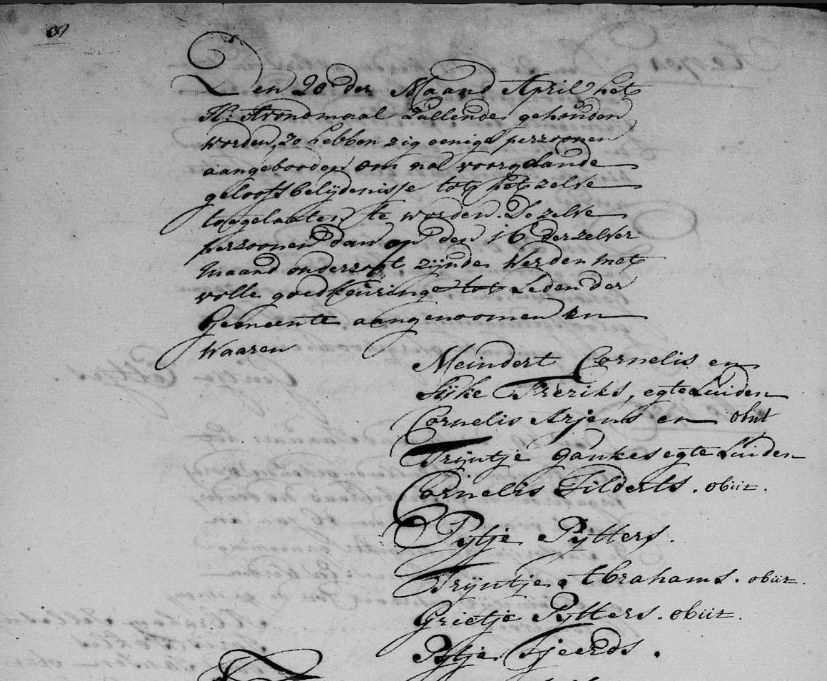 8
Den 20 der Maand April het
H: Avondmaal zullende gehouden
worden, zo hebben zig eenige perzoonen
aangebooden om na voorgaande
geloofs belijdenisse tot het zelve
toegelaaten te worden. De zelve
perzoonen dan op den 16 derzelver
maand onderzogt zijnde werden met
volle goedkeuringe tot Leden der
Gemeente aangenoomen en
waaren
Meindert Cornelis en
Sijke Freriks, egte Luiden
Cornelis Arjens en obiit
Trijntje Gaukes egte Luiden
Cornelis Tilderts. obiit.
Pijtje Pijtters.
Trijntje Abrahams. obiit.
Grietje Pijtters. obiit.
Pijtje Sjeerds.